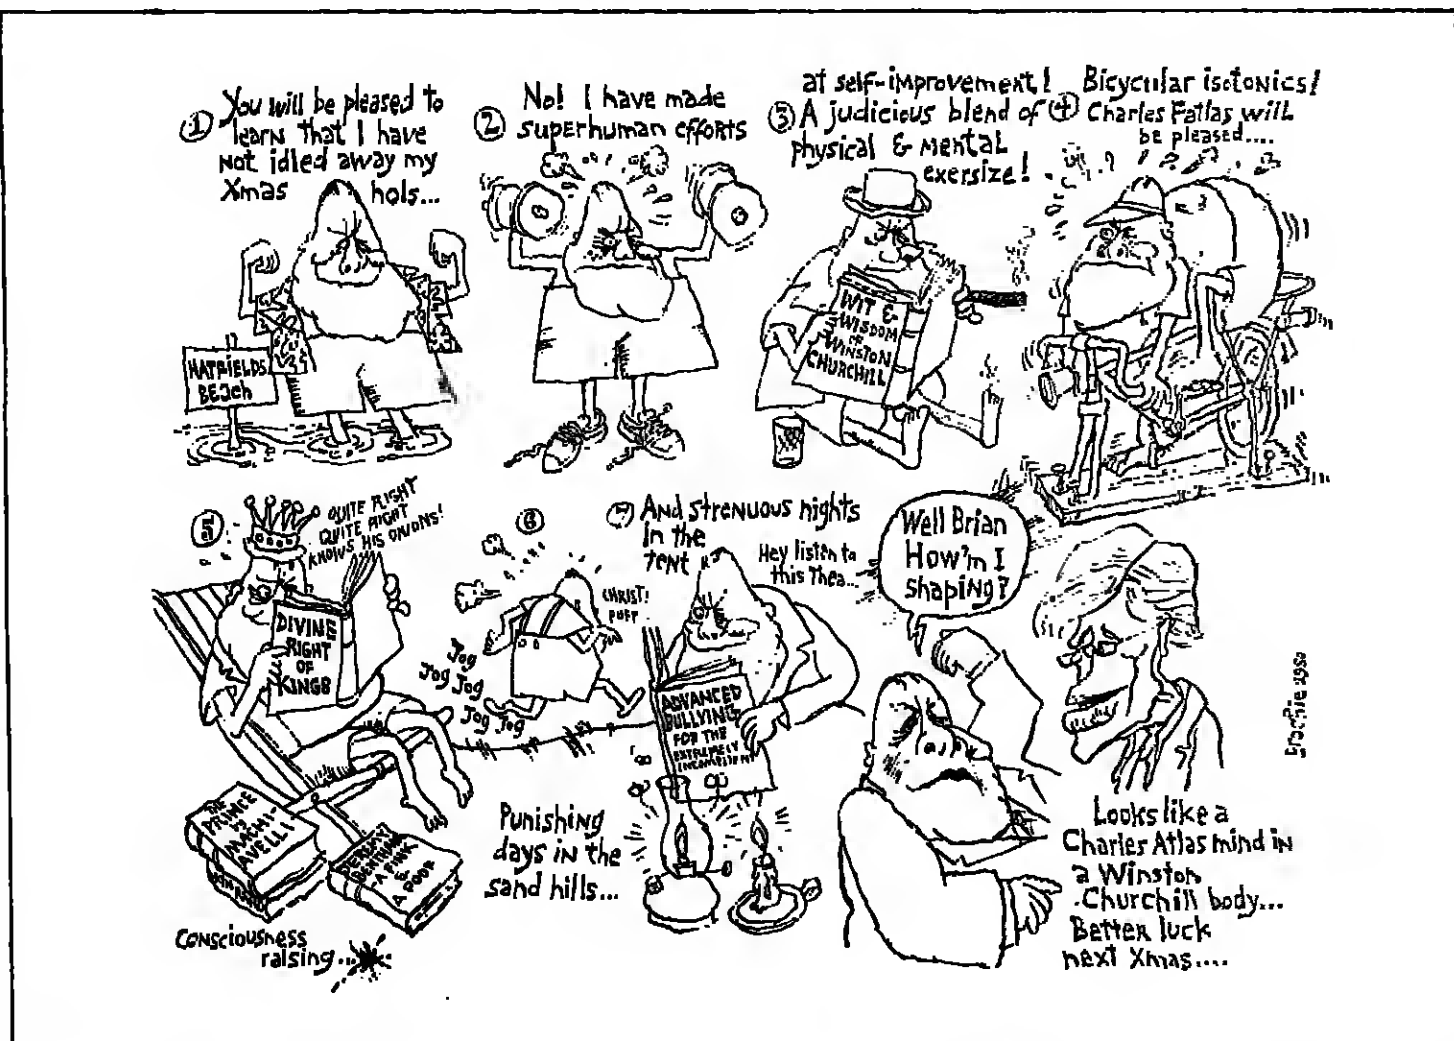 ① You will be pleased to
learn that I have
not idled away my
Xmas hols...
HATFIELDS
BEACH
② No! I have made
superhuman efforts
at self-improvement!
③ A judicious blend of
physical & mental
exersize!
WIT &
WISDOM
OF
WINSTON
CHURCHILL
④ Bicycular isotonics!
Charles Fatlas will
be pleased....
⑤
QUITE RIGHT
QUITE RIGHT
KNOWS HIS ONIONS!
DIVINE
RIGHT
OF
KINGS
THE
PRINCE
by
MACHI-
AVELLI
JEREMY
BENTHAM
A PINK
&
A POOR
Consciousness
raising...
⑥
CHRIST!
PUFF
Jog
Jog Jog
Jog Jog
Punishing
days in the
sand hills...
⑦ And strenuous nights
in the
tent
Hey listen to
this Thea...
ADVANCED
BULLYING
FOR THE
EXTREMELY
INCOMPETENT
Well Brian
How'm I
shaping?
Looks like a
Charles Atlas mind in
a Winston
Churchill body...
Better luck
next Xmas....
Brockie 1980